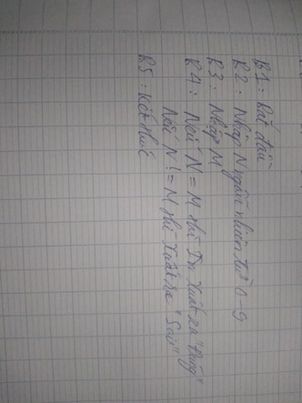 B1: Bắt đầu
B2: Nhập N ngẫu nhiên từ 0-9
B3: Nhập M
B4: Nếu N = M thì In xuất ra "Đúng"
Nếu N != M thì xuất ra "Sai"
B5: Kết thúc